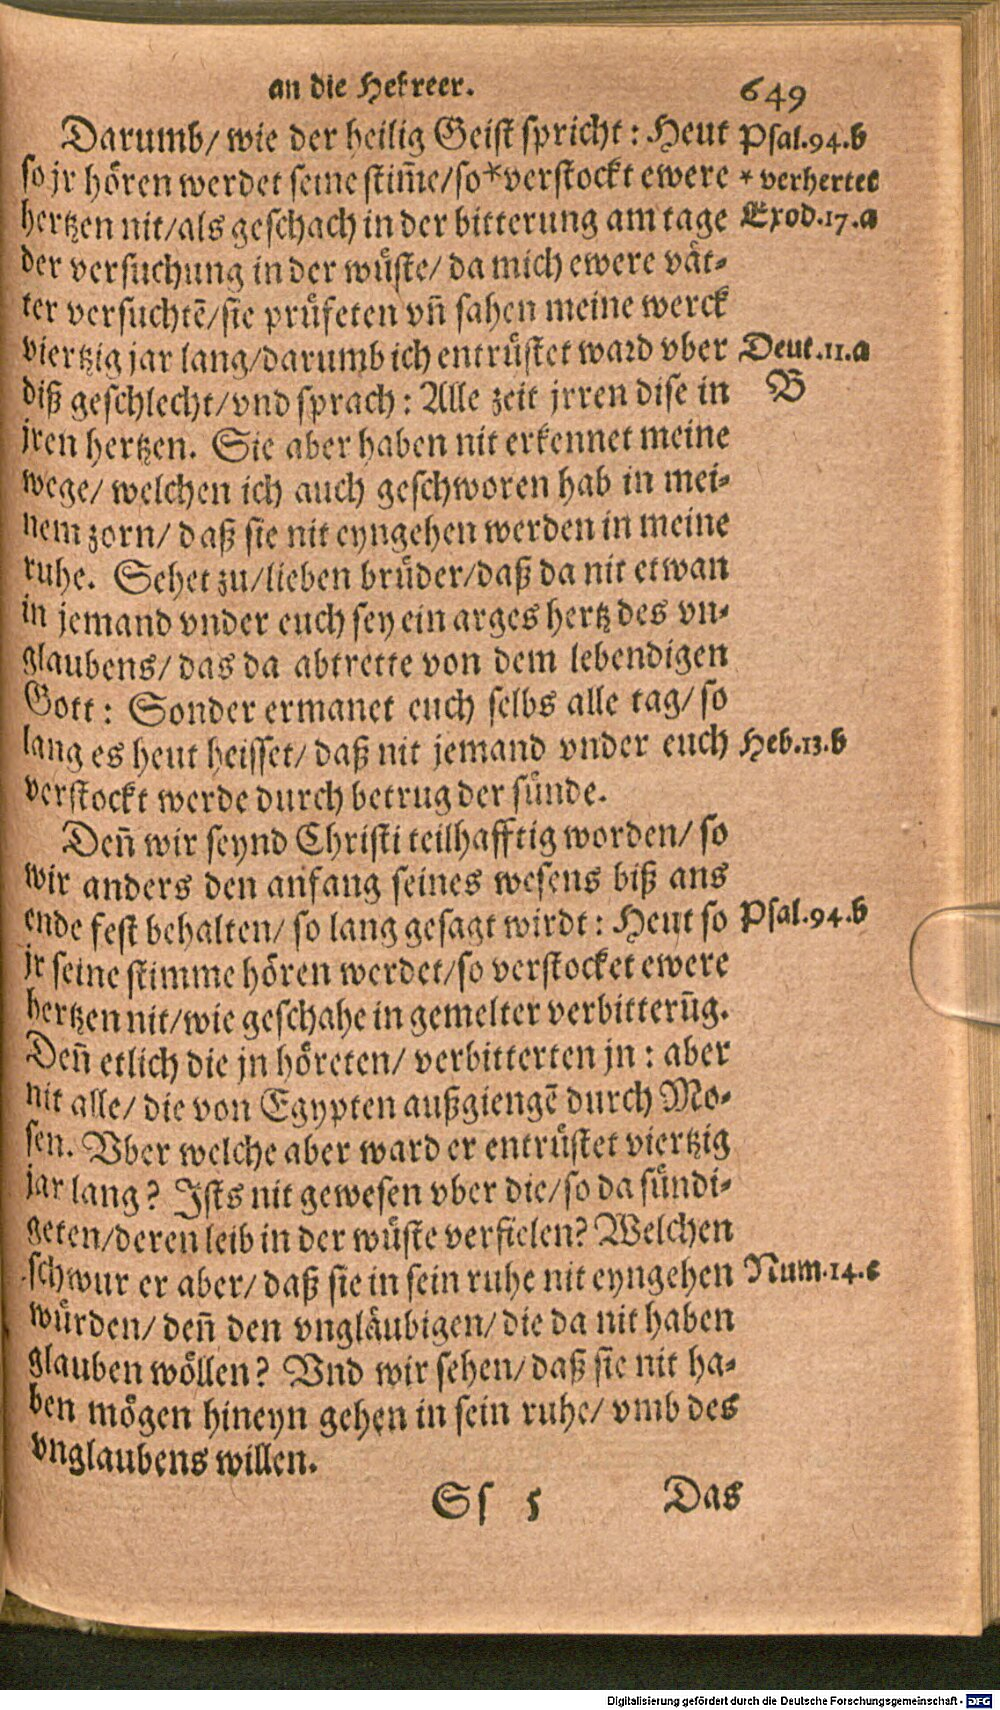 an die Hebreer. 649
Darumb/ wie der heilig Geist spricht: Heut Psal.94.b
so jr hören werdet seine stim̃e/so*verstockt ewere * verhertet
hertzen nit/als geschach in der bitterung am tage Exod.17.a
der versuchung in der wüste/ da mich ewere vät-
ter versuchtẽ/sie prüfeten vñ sahen meine werck
viertzig jar lang/darumb ich entrüstet ward vber Deut.11.a
diß geschlecht/vnd sprach: Alle zeit jrren dise in B
jren hertzen. Sie aber haben nit erkennet meine
wege/ welchen ich auch geschworen hab in mei-
nem zorn/ daß sie nit eyngehen werden in meine
ruhe. Sehet zu/lieben brüder/daß da nit etwan
in jemand vnder euch sey ein arges hertz des vn-
glaubens/ das da abtrette von dem lebendigen
Gott: Sonder ermanet euch selbs alle tag/ so
lang es heut heisset/ daß nit jemand vnder euch Heb.13.b
verstockt werde durch betrug der sünde.
Deñ wir seynd Christi teilhafftig worden/ so
wir anders den anfang seines wesens biß ans
ende fest behalten/ so lang gesagt wirdt: Heut so Psal.94.b
jr seine stimme hören werdet/so verstocket ewere
hertzen nit/wie geschahe in gemelter verbitterũg.
Deñ etlich die jn höreten/ verbitterten jn: aber
nit alle/ die von Egypten außgiengẽ durch Mo-
sen. Vber welche aber ward er entrüstet viertzig
jar lang? Ists nit gewesen vber die/so da sündi-
geten/deren leib in der wüste verfielen? Welchen
schwur er aber/ daß sie in sein ruhe nit eyngehen Num.14.c
würden/ deñ den vngläubigen/ die da nit haben
glauben wöllen? Vnd wir sehen/ daß sie nit ha-
ben mögen hineyn gehen in sein ruhe/ vmb des
vnglaubens willen.
Ss 5 Das
Digitalisierung gefördert durch die Deutsche Forschungsgemeinschaft - DFG